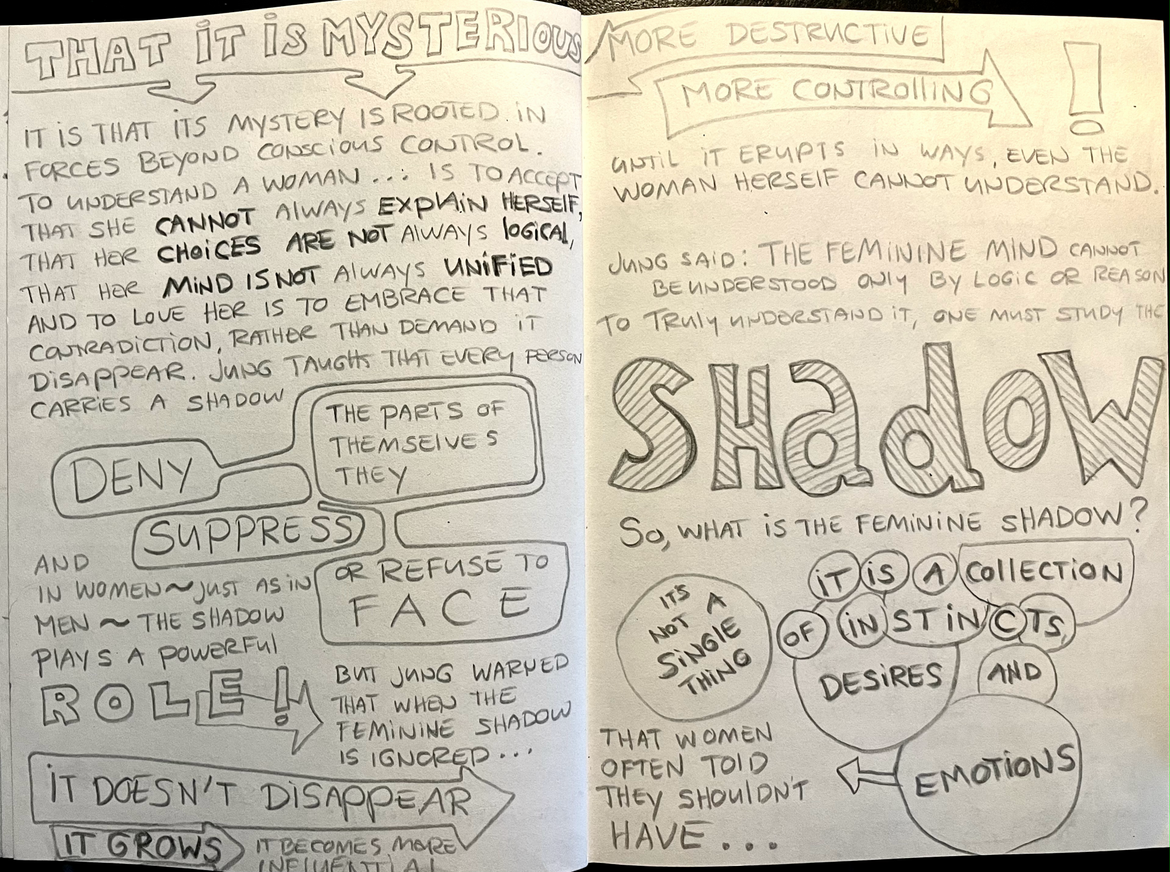 THAT iT iS MYSTERIOUS
IT IS THAT ITS MYSTERY IS ROOTED IN
FORCES BEYOND CONSCIOUS CONTROL.
TO UNDERSTAND A WOMAN ... IS TO ACCEPT
THAT SHE CANNOT ALWAYS EXPLAIN HERSELF,
THAT HER CHOICES ARE NOT ALWAYS LOGICAL,
THAT HER MIND IS NOT ALWAYS UNIFIED
AND TO LOVE HER IS TO EMBRACE THAT
CONTRADICTION, RATHER THAN DEMAND IT
DISAPPEAR. JUNG TAUGHT THAT EVERY PERSON
CARRIES A SHADOW
THE PARTS OF
THEMSELVES
THEY
DENY
SUPPRESS
OR REFUSE TO
FACE
AND
IN WOMEN ~ JUST AS IN
MEN ~ THE SHADOW
PLAYS A POWERFUL
ROLE!
BUT JUNG WARNED
THAT WHEN THE
FEMININE SHADOW
IS IGNORED ...
IT DOESN'T DISAPPEAR
IT GROWS
IT BECOMES MORE
INFLUENTIAL
MORE DESTRUCTIVE
MORE CONTROLLING !
UNTIL IT ERUPTS IN WAYS, EVEN THE
WOMAN HERSELF CANNOT UNDERSTAND.
JUNG SAID: THE FEMININE MIND CANNOT
BE UNDERSTOOD ONLY BY LOGIC OR REASON
TO TRULY UNDERSTAND IT, ONE MUST STUDY THE
SHadoW
SO, WHAT IS THE FEMININE SHADOW?
IT'S
NOT A
SINGLE
THING
iT iS A COLLECTION
OF INSTINCTS,
DESIRES AND
EMOTIONS
THAT WOMEN
OFTEN TOLD
THEY SHOULDN'T
HAVE ...